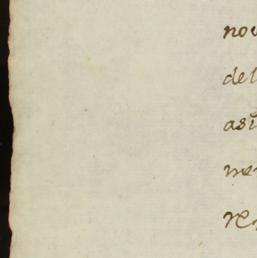 nov
del
asi
me
re